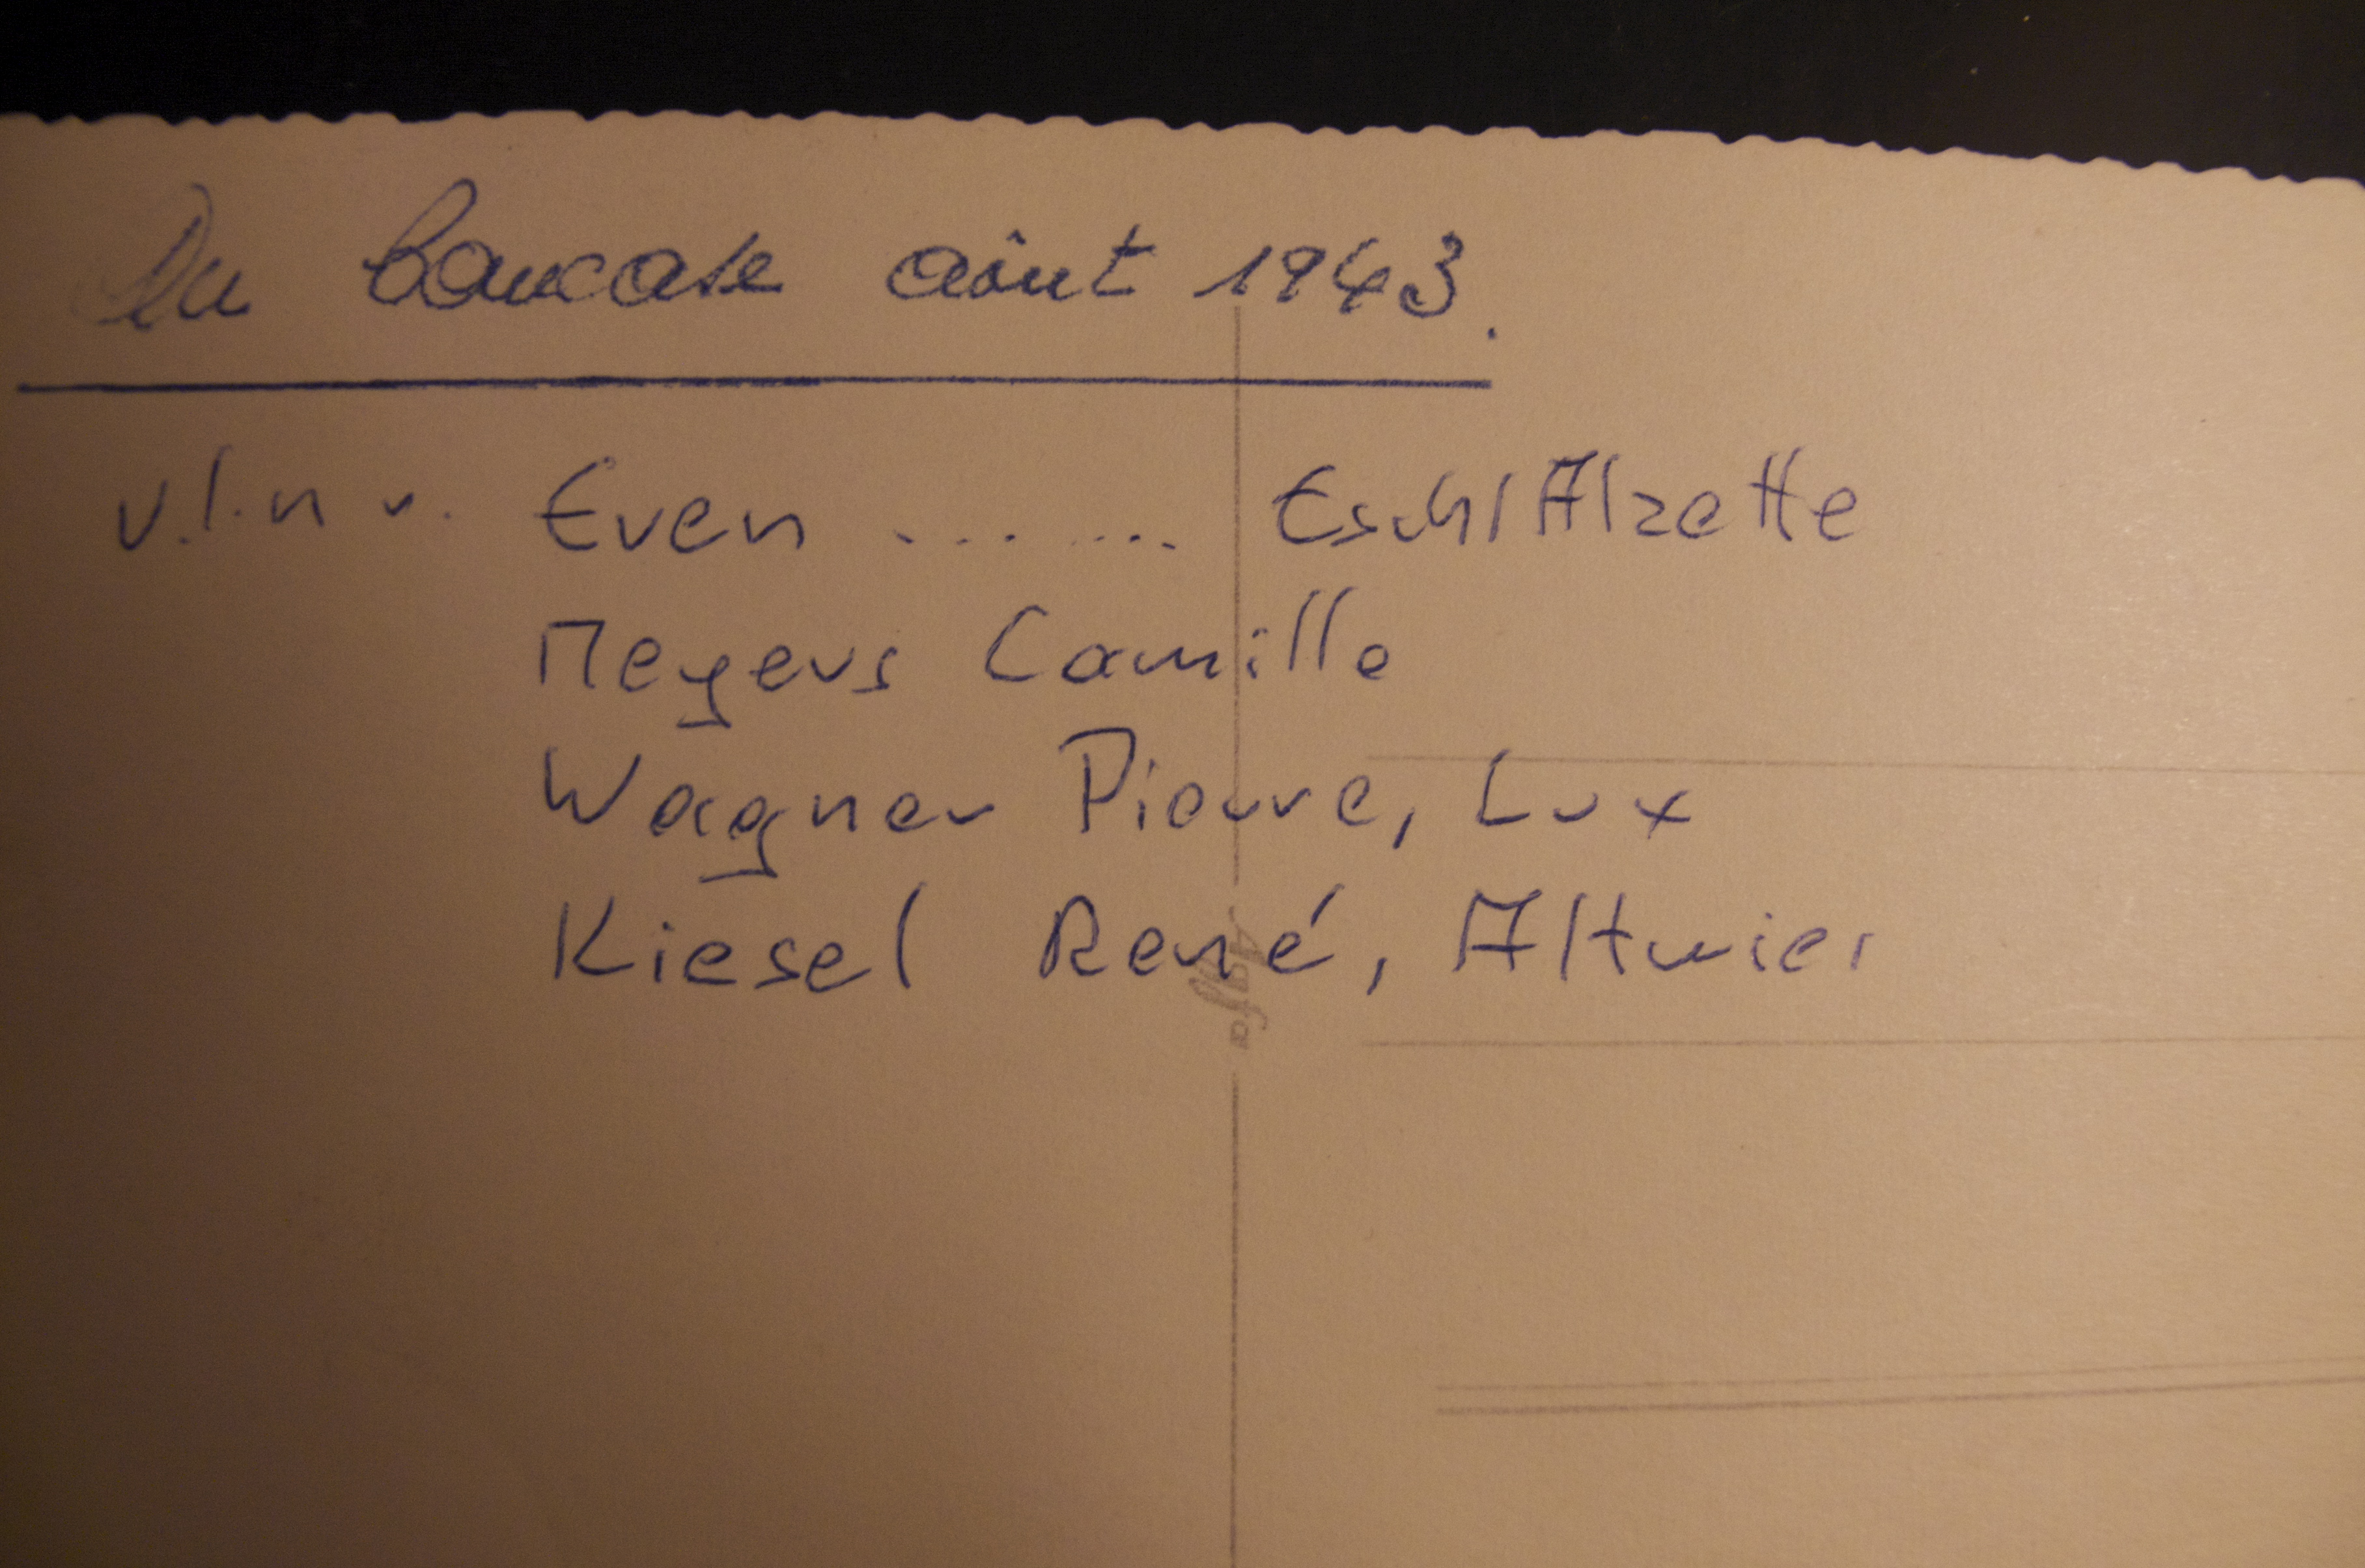 Au Caucase aôut 1943.
v.l.n r. Even ....... Esch/Alzette
Meyers Camille
Wagner Pierre, Lux
Kiesel René, Altwies
Agfa